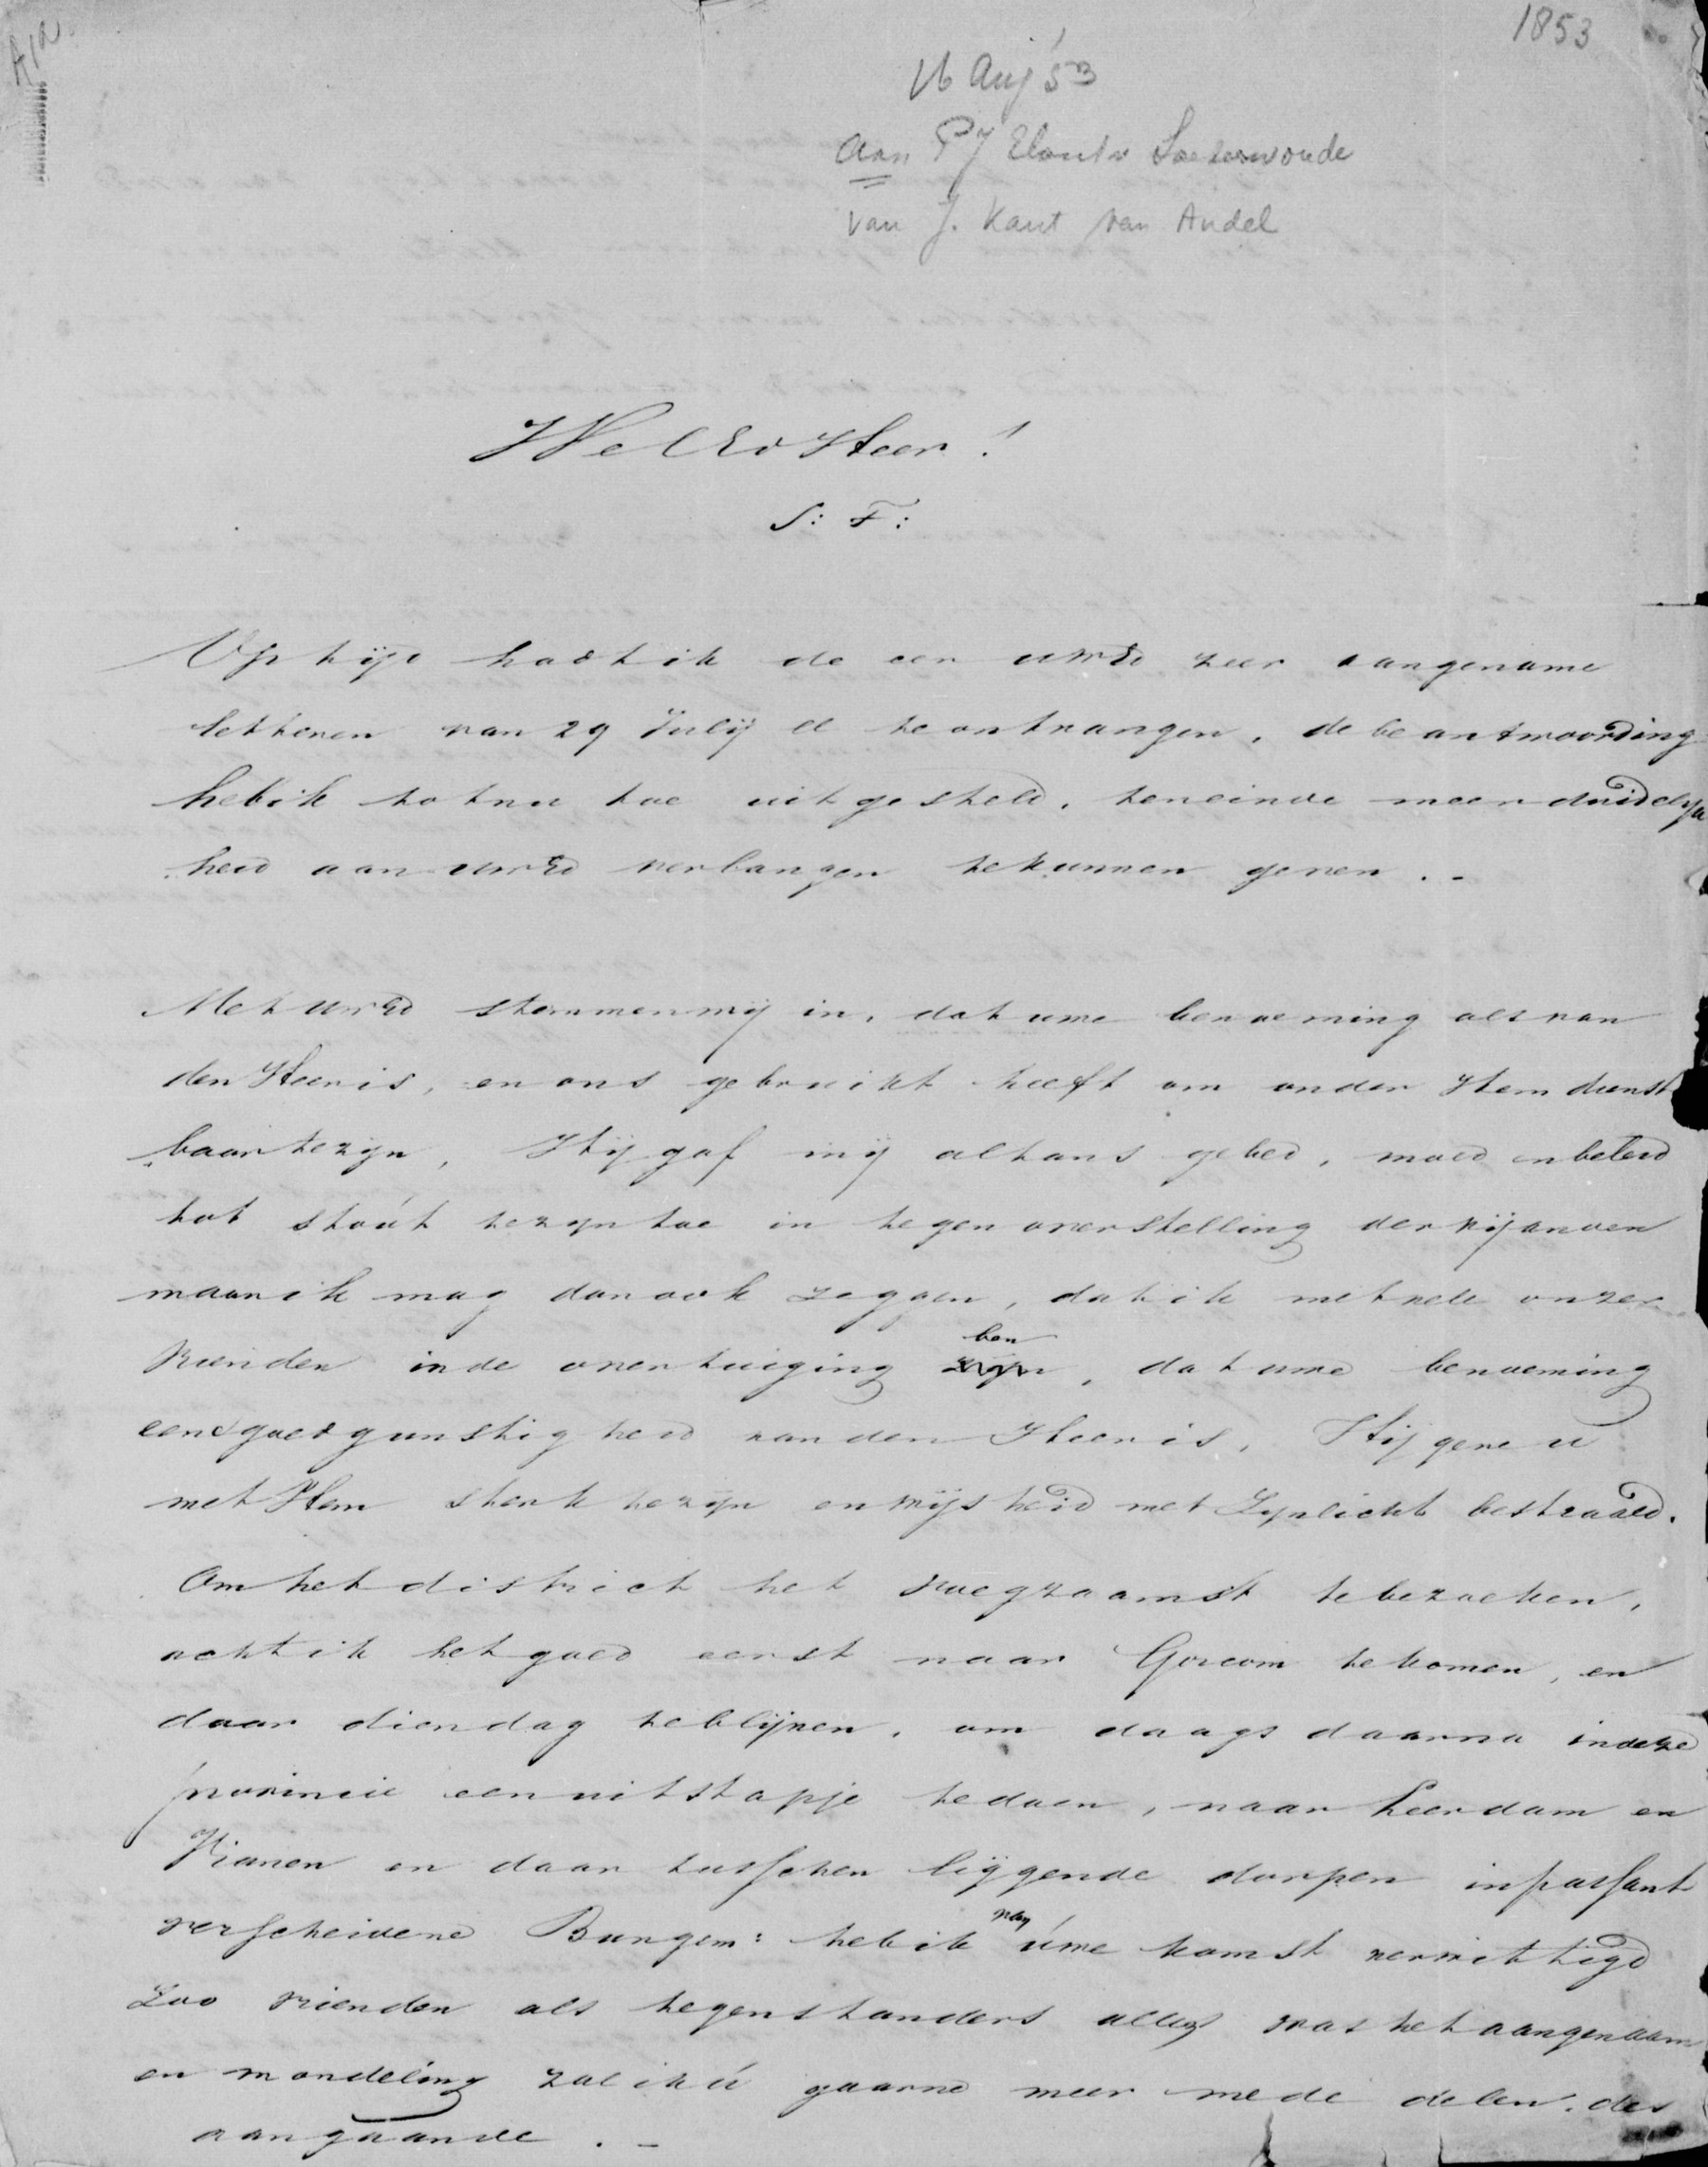 1853
16 Aug '53
aan P J Elout v Soeterwoude
van J. Kant van Andel
WelEd Heer!
S: T:
Op tijd hadt ik de eer uwEd zeer aangename
letteren van 29 Julij ll te ontvangen, de beantwoording
heb ik tot nu toe uitgesteld, teneinde meer duidelyk
heid aan uwEd verlangen te kunnen geven. -
Met uwEd stemmen wij in, dat uwe benoeming als van
den Heer is, en ons gebruikt heeft om onder Hem dienst
baar te zijn, Hij gaf mij althans gebed, moed en beleid
tot stout te zyn toe in tegenoverstelling der vijanden
maar ik mag dan ook zeggen, dat ik met vele onzer
vrienden in de overtuiging ben, dat uwe benoeming
eene goedgunstigheid van den Heer is, Hij geve u
met Hem sterk te zijn en wijsheid met Zyn licht bestraald.
Om het district het voegzaamst te bezoeken,
acht ik het goed eerst naar Gorcom te komen, en
daar dinsdag te blijven, om daags daarna in deze
provincie een uitstapje te doen, naar Leerdam en
Vianen en daar tusschen liggende dorpen in passant
verscheidene Burgem: heb ik van uwe komst verwittigd
Zoo vrienden als tegenstanders alles was het aangenaam
en mondeling zal ik u gaarne meer mede delen, des
aangaande. -